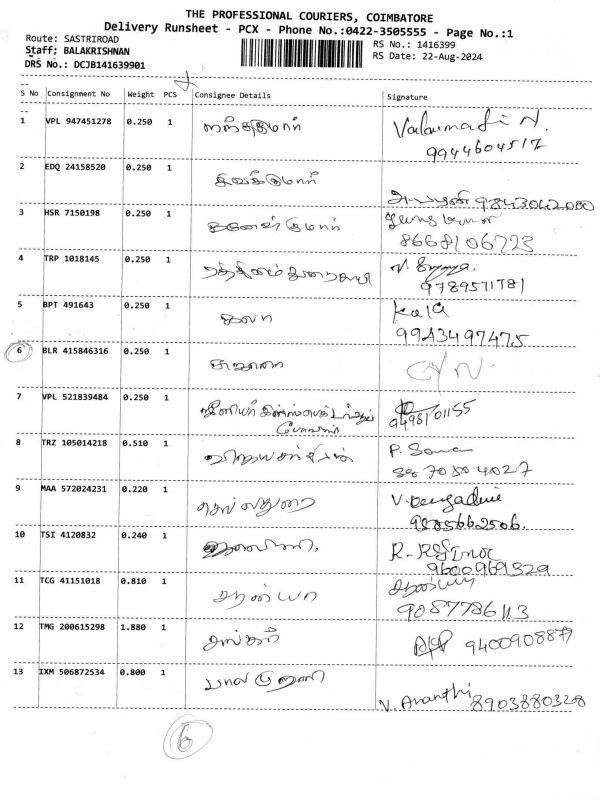 THE PROFESSIONAL COURIERS, COIMBATORE
Delivery Runsheet - PCX - Phone No.:0422-3505555 - Page No.:1
Route: SASTRIROAD
RS No.: 1416399
Staff; BALAKRISHNAN
RS Date: 22-Aug-2024
DRS No.: DCJB141639901
S No Consignment No Weight PCS Consignee Details Signature
1 VPL 947451278 0.250 1 நந்தகுமார்
9944604517
2 EDQ 24158520 0.250 1 சிவக்குமார்
9843042000
3 HSR 7150198 0.250 1 கணேஷ்குமார்
8668106723
4 TRP 1018145 0.250 1
9789571781
5 BPT 491643 0.250 1 கலா Kala
9943497475
6 BLR 415846316 0.250 1 சுஜாதை
7 VPL 521839484 0.250 1
9498101155
8 TRZ 105014218 0.510 1 P. Sona
9 MAA 572024231 0.220 1 செல்லதுரை
10 TSI 4120832 0.240 1
9600969329
11 TCG 41151018 0.810 1 சரண்யா
9087786113
12 TMG 200615298 1.880 1 சங்கரி 9400908879
13 IXM 506872534 0.800 1 பாலமுரளி
V. Ananthi 8903880328
6